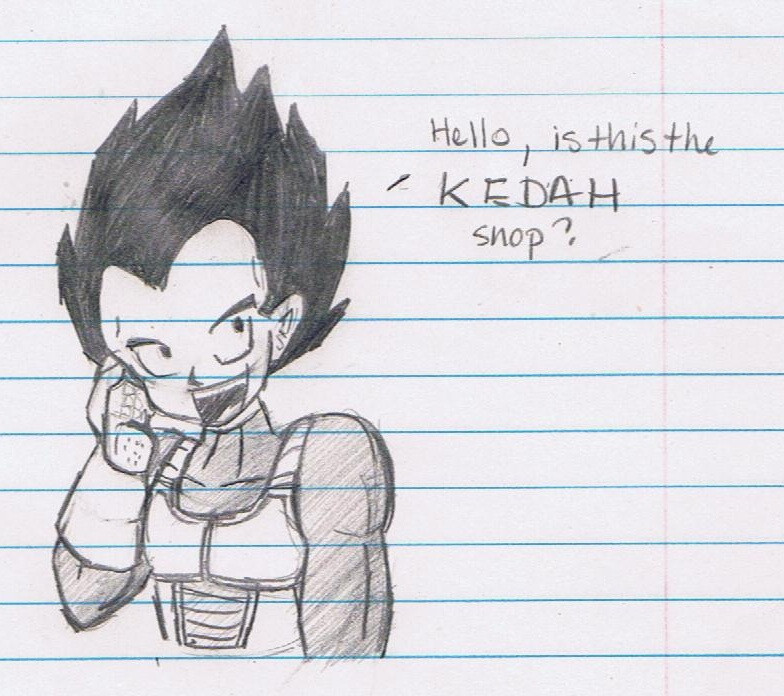 Hello, is this the
KEDAH
shop?